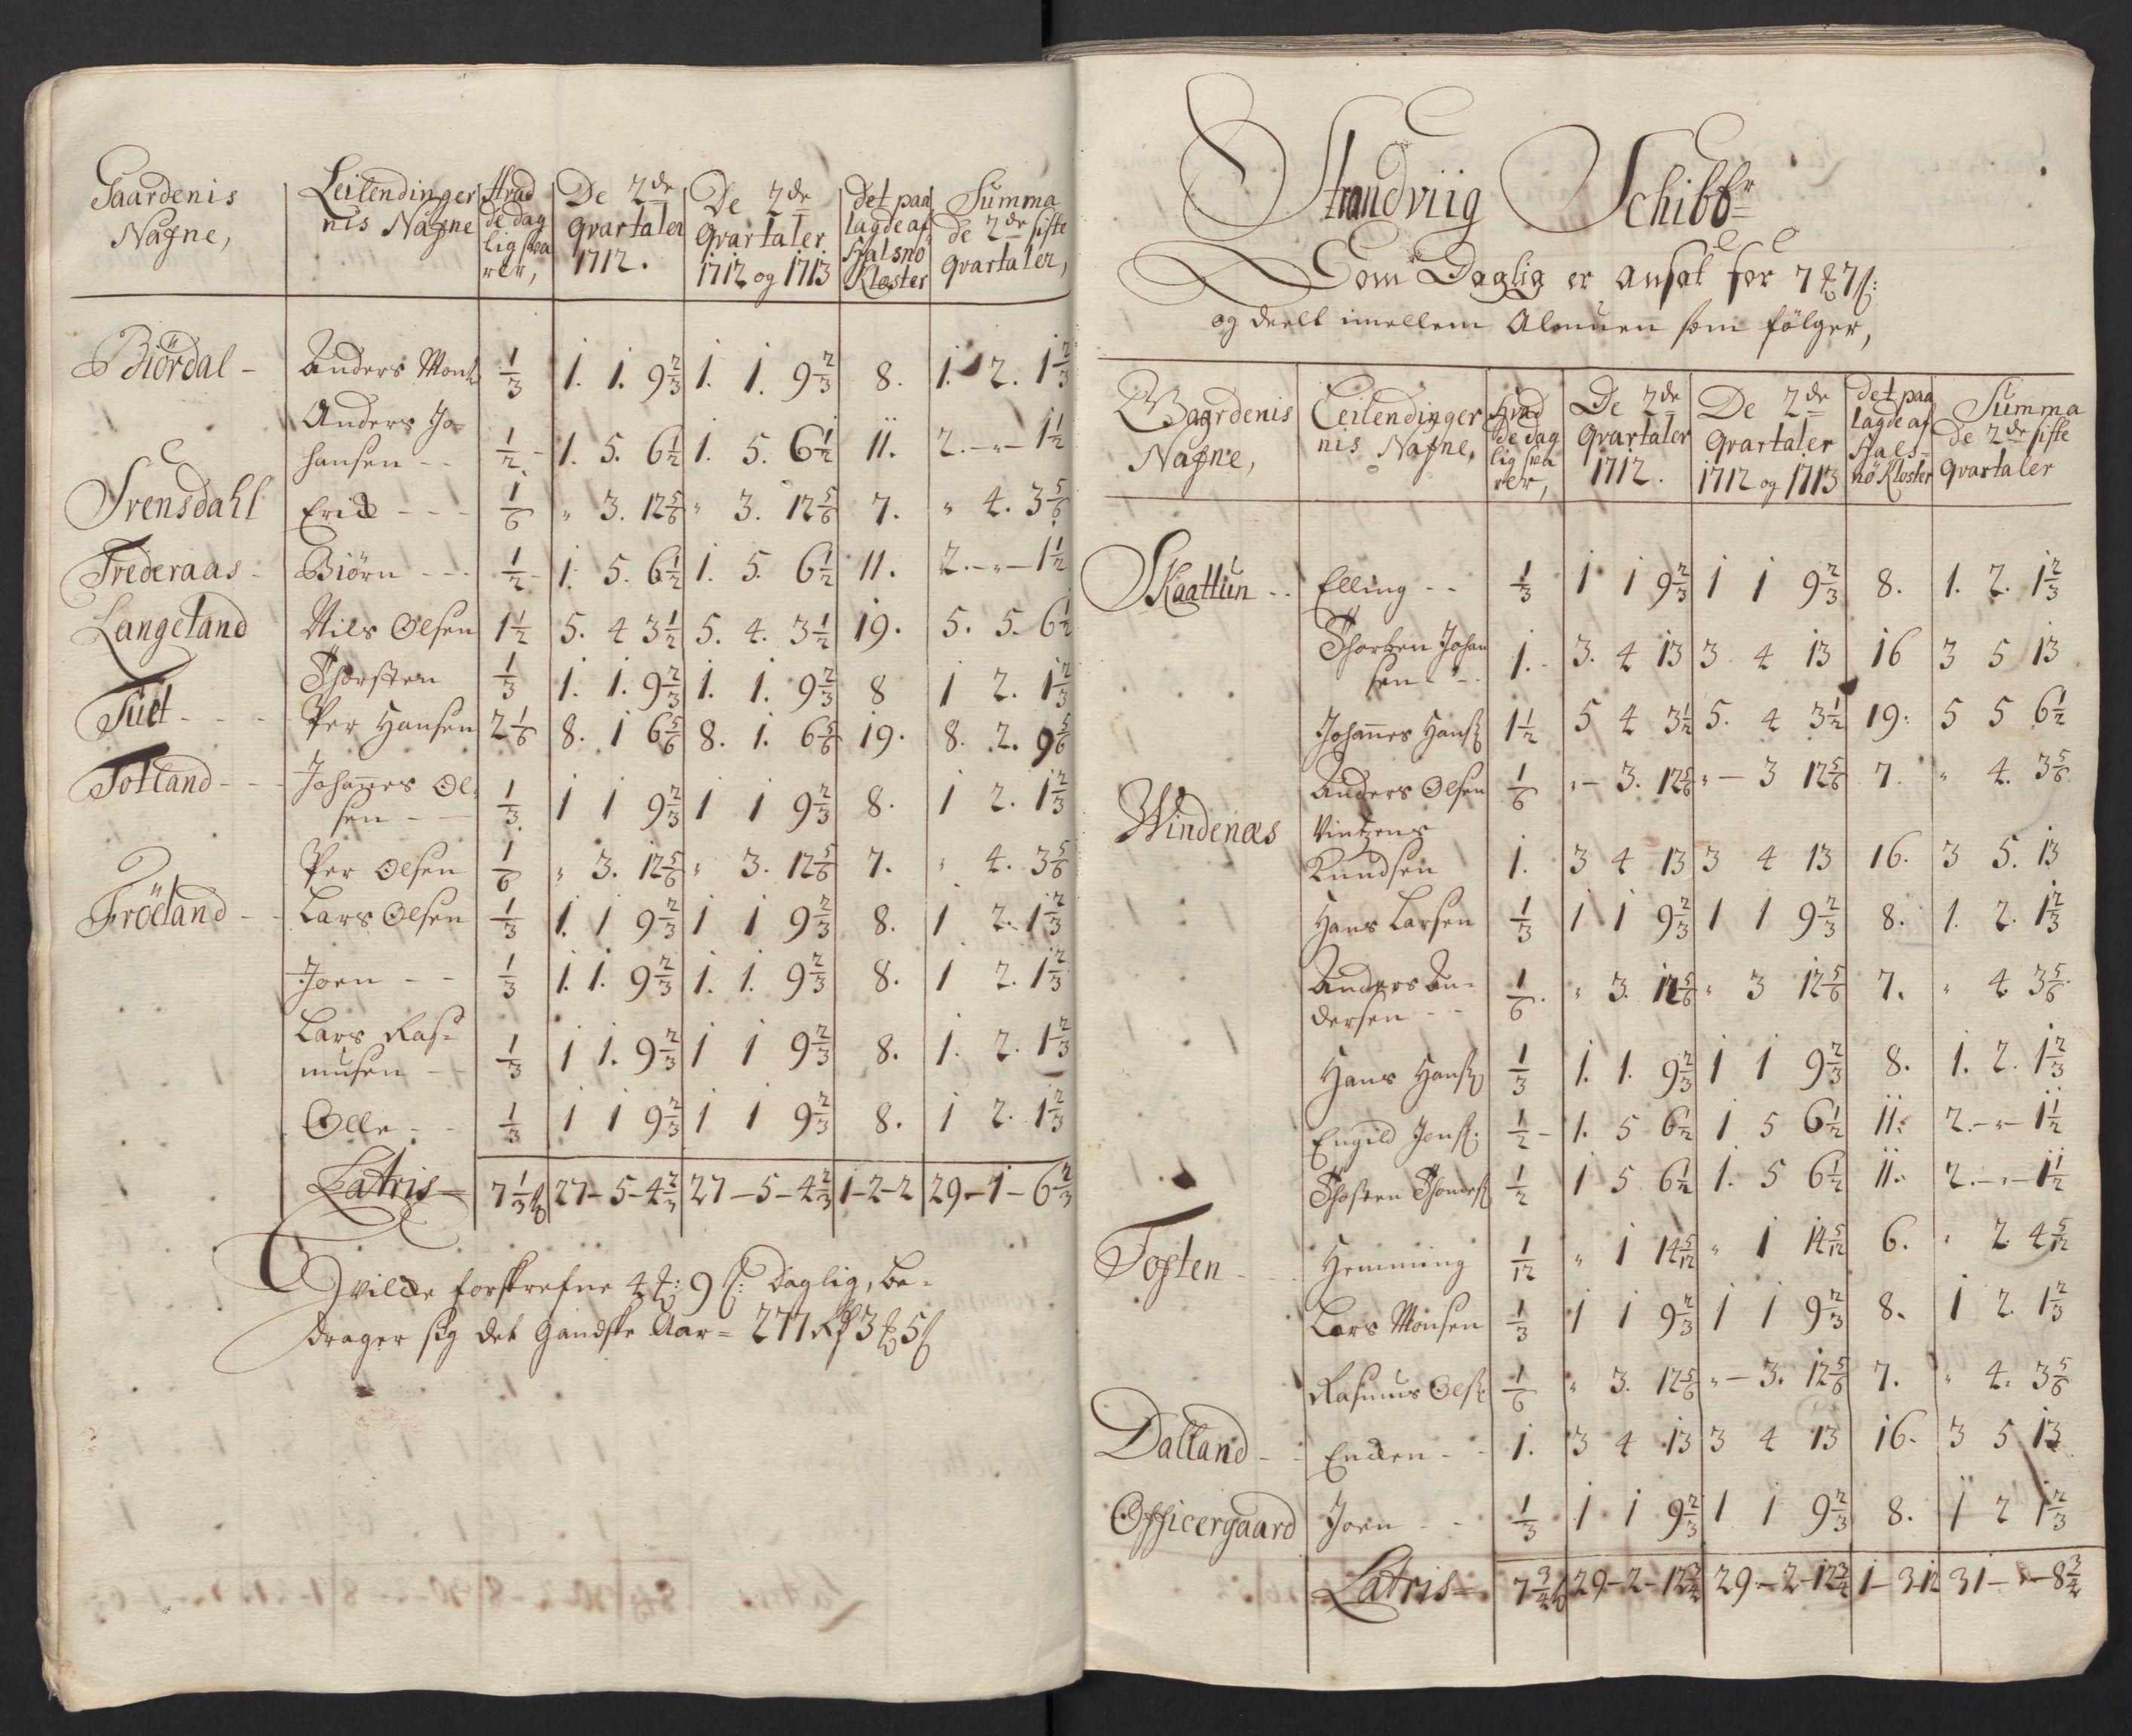 Gaardenis Nafne, | Leilendingernis Nafne | Hvad de daglig svarer, | De 2de Qvartaler 1712. | De 2de Qvartaler 1712 og 1713 | det paalagde af Halsnö Kloster | Summa de 2de siste Qvartaler,
Biördal - | Anders Monss | 1/3 | 1. 1. 9 2/3 | 1. 1. 9 2/3 | 8. | 1. 2. 1 2/3
Anders Jo=
hansen - - | 1/2 - | 1. 5. 6 1/2 | 1. 5. 6 1/2 | 11. | 2. - „ - 1 1/2
Svensdahl | Erick - - - | 1/6 | „ 3. 12 5/6 | „ 3. 12 5/6 | 7. | „ 4. 3 5/6
Trederaas - | Biörn - - - | 1/2 - | 1. 5. 6 1/2 | 1. 5. 6 1/2 | 11. | 2. - „ - 1 1/2
Langeland | Nils Olsen | 1 1/2 | 5. 4 3 1/2 | 5. 4. 3 1/2 | 19. | 5. 5. 6 1/2
Thorsten | 1/3 | 1. 1. 9 2/3 | 1. 1. 9 2/3 | 8 | 1 2. 1 2/3
Tuet - - - | Per Hansen | 2 1/6 | 8. 1 6 5/6 | 8. 1. 6 5/6 | 19. | 8. 2. 9 5/6
Totland - - - | Johannes Ol=
sen - - | 1/3. | 1 1 9 2/3 | 1 1 9 2/3 | 8. | 1 2. 1 2/3
Per Olsen | 1/6 | „ 3. 12 5/6 | „ 3. 12 5/6 | 7. | „ 4. 3 5/6
Fröland - - | Lars Olsen | 1/3 | 1. 1 9 2/3 | 1 1 9 2/3 | 8. | 1 2. 1 2/3
Joen - - | 1/3 | 1. 1. 9 2/3 | 1. 1. 9 2/3 | 8. | 1 2. 1 2/3
Lars Ras=
musen - - | 1/3 | 1 1. 9 2/3 | 1 1 9 2/3 | 8. | 1. 2. 1 2/3
Olle - - | 1/3 | 1 1 9 2/3 | 1 1 9 2/3 | 8. | 1 2. 1 2/3
Latris = | 7 1/3 ß | 27 - 5 - 4 2/3 | 27 - 5 - 4 2/3 | 1 - 2 - 2 | 29 - 1 - 6 2/3
Hvilcke forskrefne 4 : 9 ß: Daglig, be=
drager sig det gandske Aar = 277 Rd 3 5 ß
Strandviig Schibbr
Som Daglig er ansat for 7 7 ß:
og deelt imellem Almuen som fölger,
Gaardenis Nafne, | Leilendingernis Nafne, | Hvad de daglig svarer, | De 2de Qvartaler 1712. | De 2de Qvartaler 1712 og 1713 | det paalagde af Hals=nö Kloster | Summa de 2de siste Qvartaler
Skaatlun - - | Elling - - | 1/3 | 1 1 9 2/3 | 1 1 9 2/3 | 8. | 1. 2. 1 2/3
Johan
sen - - | 1. - | 3. 4 13 | 3 4 13 | 16 | 3 5 13
Johannes Hanß | 1 1/2 | 5 4 3 1/2 | 5. 4 3 1/2 | 19: | 5 5 6 1/2
Anders Olsen | 1/6 | „ - 3. 12 5/6 | „ - 3 12 5/6 | 7. | „ 4. 3 5/6
Windenæs | Vintzens
Knudsen | 1. | 3 4 13 | 3 4 13 | 16. | 3 5. 13
Hans Larsen | 1/3 | 1 1 9 2/3 | 1 1 9 2/3 | 8. | 1. 2. 1 2/3
Anders An=
dersen - - | 1/6. | „ 3. 12 5/6 | „ 3 12 5/6 | 7. | „ 4 3 5/6
Hans Hanß | 1/3 | 1. 1. 9 2/3 | 1 1 9 2/3 | 8. | 1. 2. 1 2/3
Engild Jonß. | 1/2 - | 1. 5 6 1/2 | 1 5 6 1/2 | 11: | 2. - „ - 1 1/2
1/2 | 1 5 6 1/2 | 1. 5 6 1/2 | 11. | 2. - „ - 1 1/2
Tosten - - | Hemming | 1/12 | „ 1 14 5/12 | „ 1 14 5/12 | 6. | „ 2 4 5/12
Lars Monsen | 1/3 | 1 1 9 2/3 | 1 1 9 2/3 | 8. | 1 2. 1 2/3
Rasmus Olß: | 1/6 | „ 3. 12 5/6 | „ - 3. 12 5/6 | 7. | „ 4. 3 5/6
Dalland - - | Encken - - | 1. | 3 4 13 | 3 4 13 | 16. | 3 5 13
Officergaard | Joen - - | 1/3 | 1 1 9 2/3 | 1 1 9 2/3 | 8. | 1 2 1 2/3
Latris = | 7 3/4 ß | 29 - 2 - 12 3/4 | 29 - 2 - 12 3/4 | 1 - 3 - 12 | 31 - „ - 8 3/4